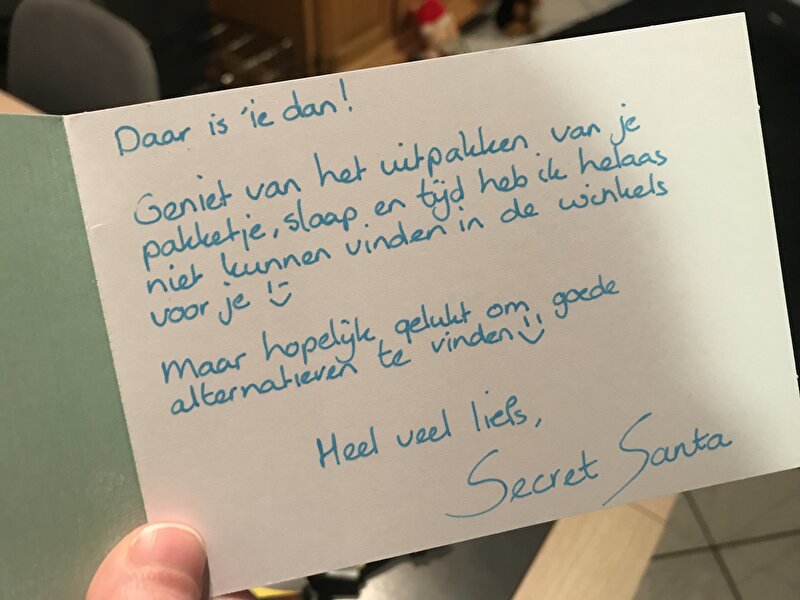 Daar is 'ie dan!
Geniet van het uitpakken van je
pakketje, slaap en tijd heb ik helaas
niet kunnen vinden in de winkels
voor je! :)
Maar hopelijk gelukt om goede
alternatieven te vinden! :)
Heel veel liefs,
Secret Santa